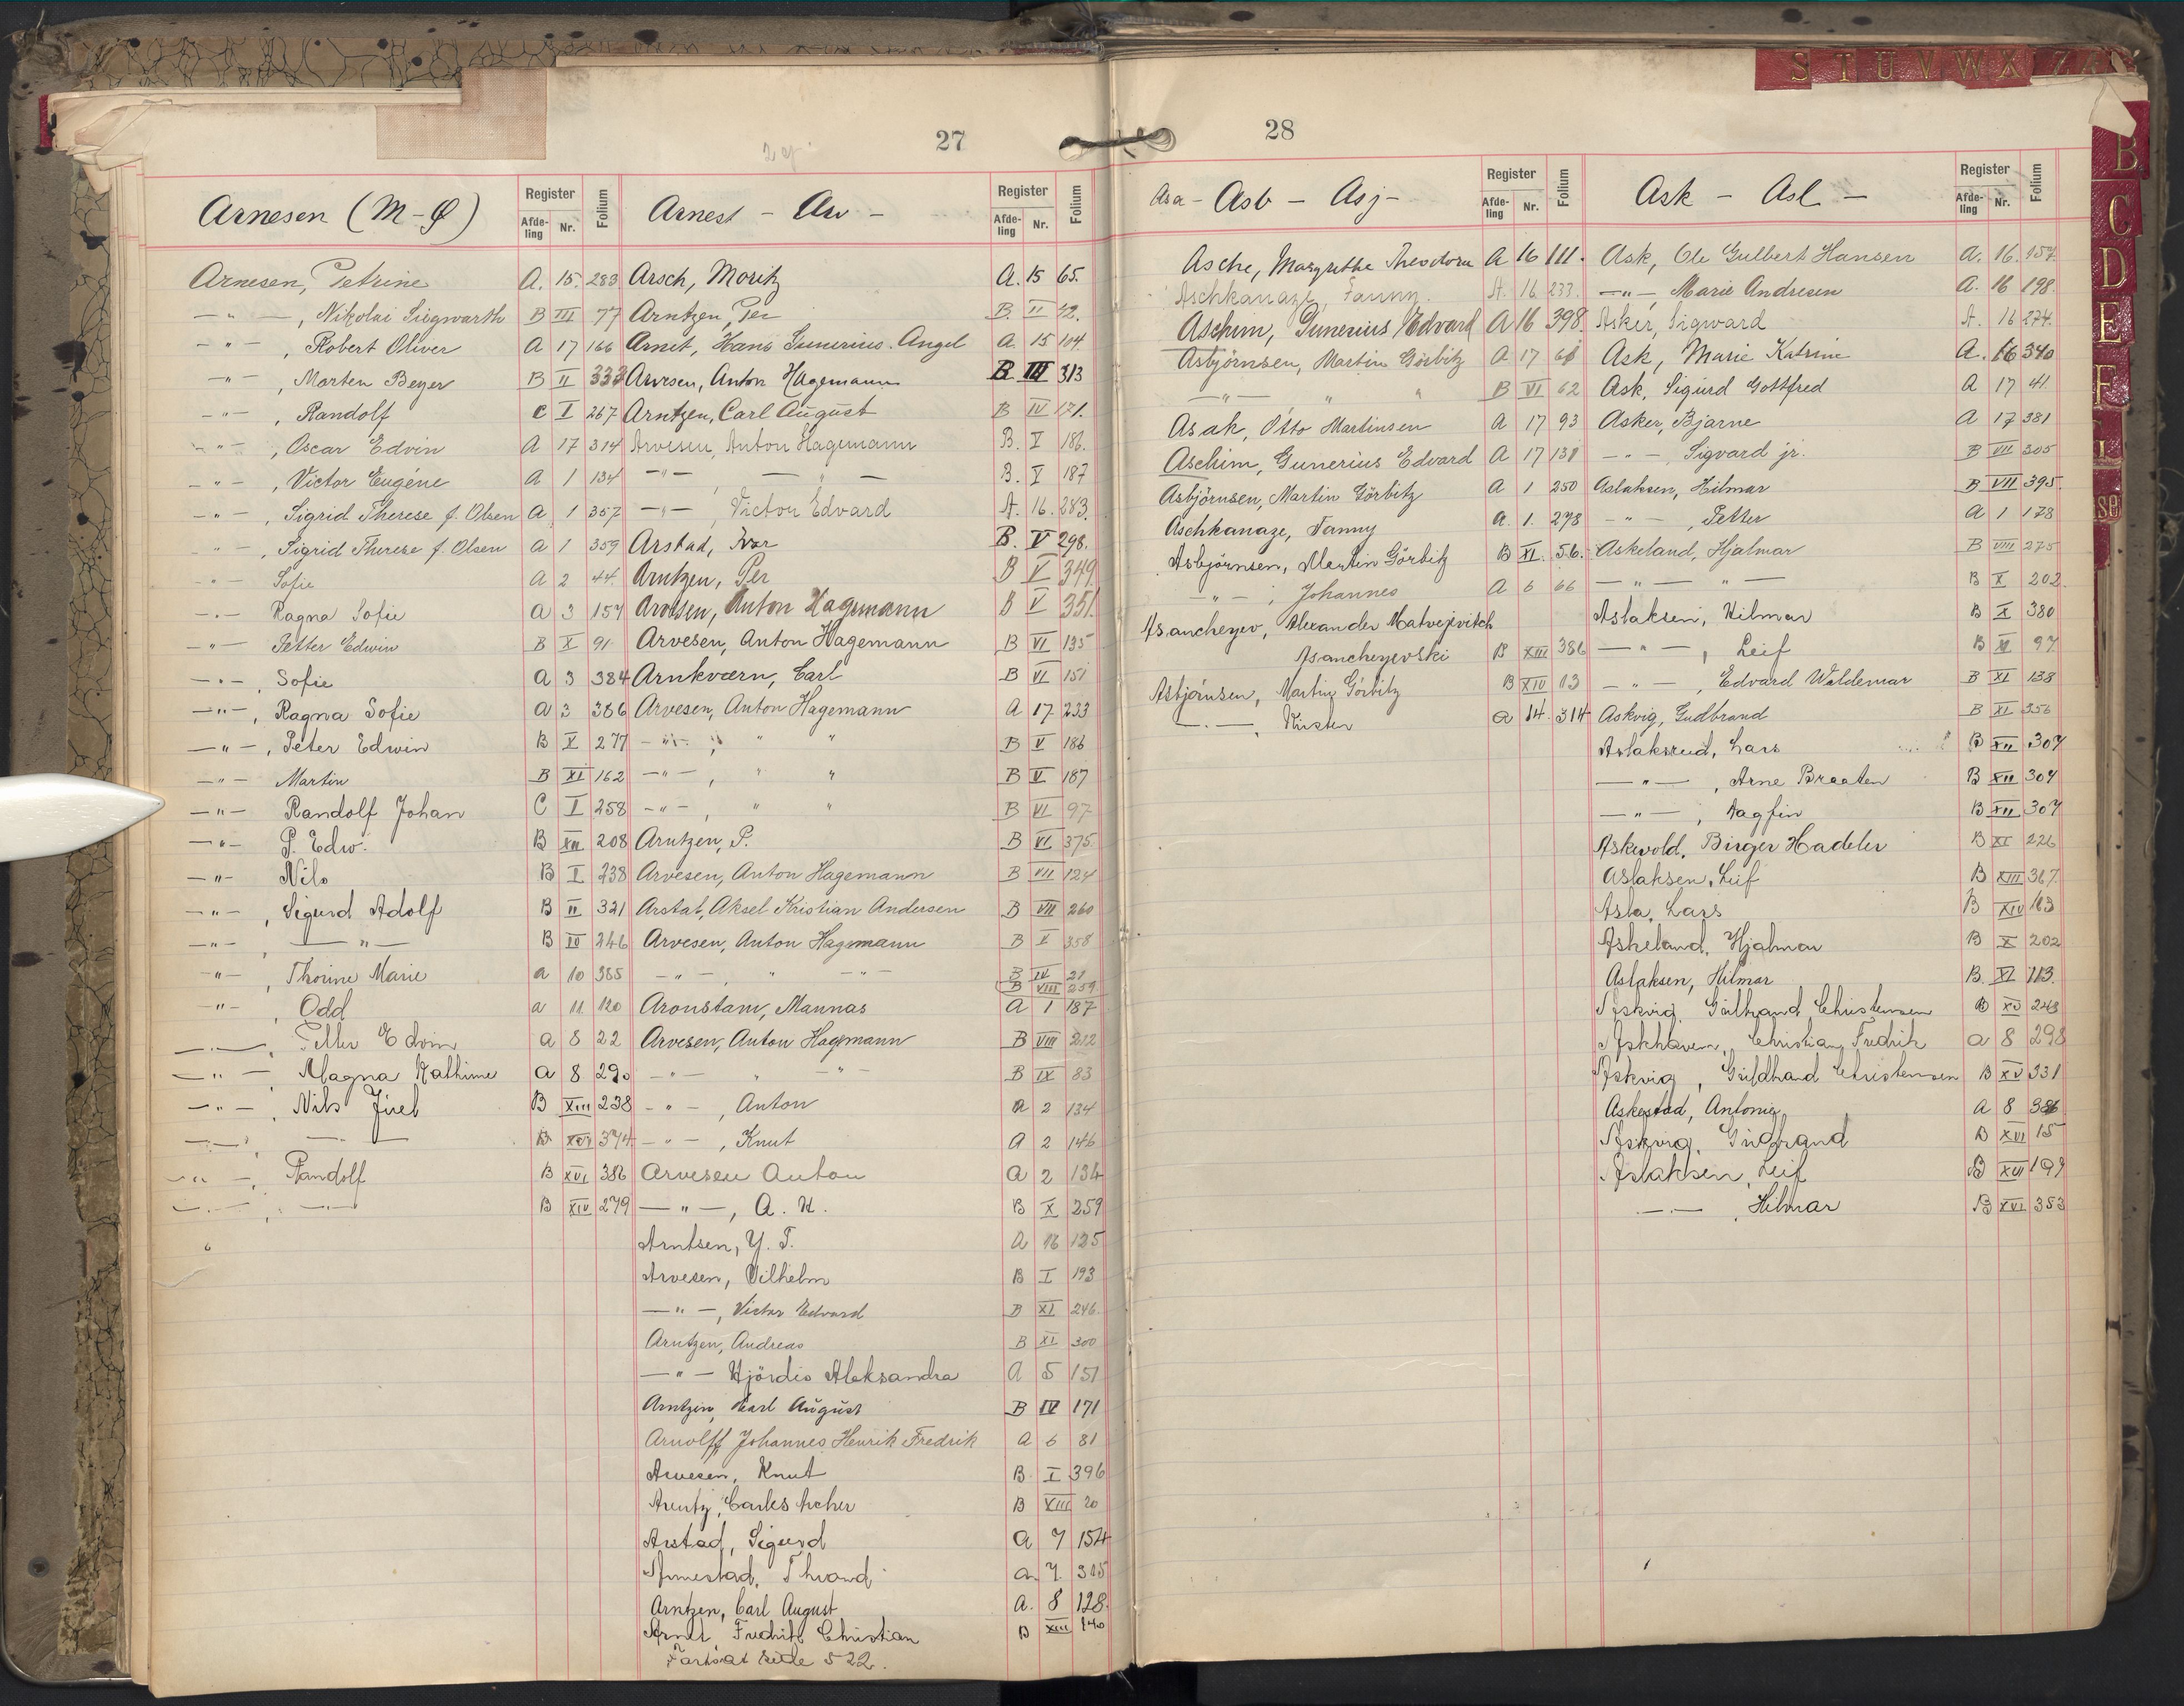 S T U V W X
B
C
D
E
F
27
Arnesen (M-Ø)
Register
Afdeling
Nr.
Folium
Arnesen, Petrine A. 15. 283
—"—, Nikolai Siegwarth B III 77
—"—, Robert Oliver A 17 166
—"—, Morten Beyer B II 333
—"—, Randolf C I 267
—"—, Oscar Edvin A 17 314
—"—, Victor Eugéne A 1 134
—"—, Sigrid Therese f. Olsen A 1 357
—"—, Sigrid Therese f. Olsen A 1 359
—"— Sofie A 2 44
—"— Ragna Sofie A 3 157
—"— Petter Edwin B X 91
—"—, Sofie A 3 384
—"—, Ragna Sofie A 3 386
—"—, Peter Edwin B X 277
—"— Martin B XI 162
—"— Randolf Johan C I 258
—"— P. Edw. B XII 208
—"— Nils B I 238
—"—, Sigurd Adolf B II 321
—"—, —"— B IV 246
—"—, Thorine Marie a 10 385
—"—, Odd a 11 120
—"—, Petter Edvin a 8 22
—"—, Magna Kathine A 8 290
—"—, Nils Juel B XIII 238
—"— —"— B XVI 374
—"—, Randolf B XVI 386
—"—, —"— B XIV 279
Arnest - Arv -
Register
Afdeling
Nr.
Folium
Arsch, Moritz A. 15 65.
Arntzen, Per B. II 42.
Arnet, Hans Gunerius Angel A. 15 104
Arvesen, Anton Hagemann B III 313
Arntzen, Carl August B IV 171.
Arvesen, Anton Hagemann B. V 186.
—"—, —"— B. V 187
—"—, Victor Edvard A. 16. 283.
Arstad, Ivar B. V 298.
Arntzen, Per B V 349
Arvesen, Anton Hagemann B V 351.
Arvesen, Anton Hagemann B VI 135
Arnkværn, Carl B VI 151
Arvesen, Anton Hagemann A 17 233
—"—, " " B V 186
—"—, " " B V 187
—"—, " " B VI 97
Arntzen, P. B VI 375.
Arvesen, Anton Hagemann B VII 124
Arstat, Aksel Kristian Andersen B VII 260
Arvesen, Anton Hagemann B V 358
—"—, " —"— B IV 21
B VIII 259
Aronstam, Mannas A 1 187
Arvesen, Anton Hagemann B VIII 212
—"— " —"— B IX 83
—"—, Anton A 2 134
—"—, Knut A 2 146
Arvesen Anton A 2 134
—"—, A. H. B X 259
Arntsen, Y. T. A 16 125
Arvesen, Vilhelm B I 193
—"—, Victor Edvard B XI 246.
Arntzen, Andreas B XI 300
—"— Hjördis Aleksandra A 5 151
Arntzen, Karl August B IV 171
Arnolff, Johannes Henrik Fredrik A 6 81
Arvesen, Knut B I 396
Arentz, Carles Archer B XIII 20
Arstad, Sigurd A 7 154
Arnestad, Thrond a 7 315
Arntzen, Carl August A. 8 128.
Arnet, Fredrik Christian B XIII 140
Fortsat side 522.
28
Asa - Asb - Asj -
Register
Afdeling
Nr.
Folium
Asche, Margrethe Theodora A 16 111.
Aschkanaze, Fanny. A. 16 233.
Aschim, Gunerius Edvard A 16 398.
Asbjörnsen, Martin Görbitz A 17 61
—"— " " B VI 62
Asak, Otto Martinsen A 17 93
Aschim, Gunerius Edvard A 17 131
Asbjörnsen, Martin Görbitz A 1 250
Aschkanaze, Fanny A. 1. 278
Asbjörnsen, Martin Görbitz B XI. 56.
—"—, Johannes A 6 66
Asancheyev, Alexander Matvejevitch
Asancheyevski B XIII 386
Asbjörnsen, Martin Görbitz B XIV 13
—"—, Kirsten a 14. 314
Ask - Asl -
Register
Afdeling
Nr.
Folium
Ask, Ole Gulbert Hansen A. 16. 157
—"—, Marie Andresen A. 16 198.
Asker, Sigward A. 16 274.
Ask, Marie Katrine A. 16 340
Ask, Sigurd Gottfred A 17 41.
Asker, Bjarne A 17 381
—"—, Sigvard jr. B VII 305
Aslaksen, Hilmar B VII 395
—"—, Petter A 1 178
Askeland, Hjalmar B VIII 275
—"— "— B X 202
Aslaksen, Hilmar B X 380
—"—, Leif B XI 97
—"—, Edvard Waldemar B XI 138
Askvig, Gudbrand B XI 356
Aslaksrud, Lars B XII 307
—"—, Arne Braaten B XII 307
—"—, Dagfin B XII 307
Askvold, Birger Hadeler B XI 226
Aslaksen, Leif B XIII 367.
Asla, Lars B XIV 163
Askeland, Hjalmar B X 202
Aslaksen, Hilmar B. XI 113.
Askvig, Gudbrand Christensen B XV 248
Askhaven, Christian Fredrik a 8 298
Askvig, Guldbrand Christensen B XV 331
Askestad, Antonie A 8 386
Askvig, Gudbrand B XVI 15
Aslaksen, Leif B XVI 197
—"—, Hilmar B XVI 353